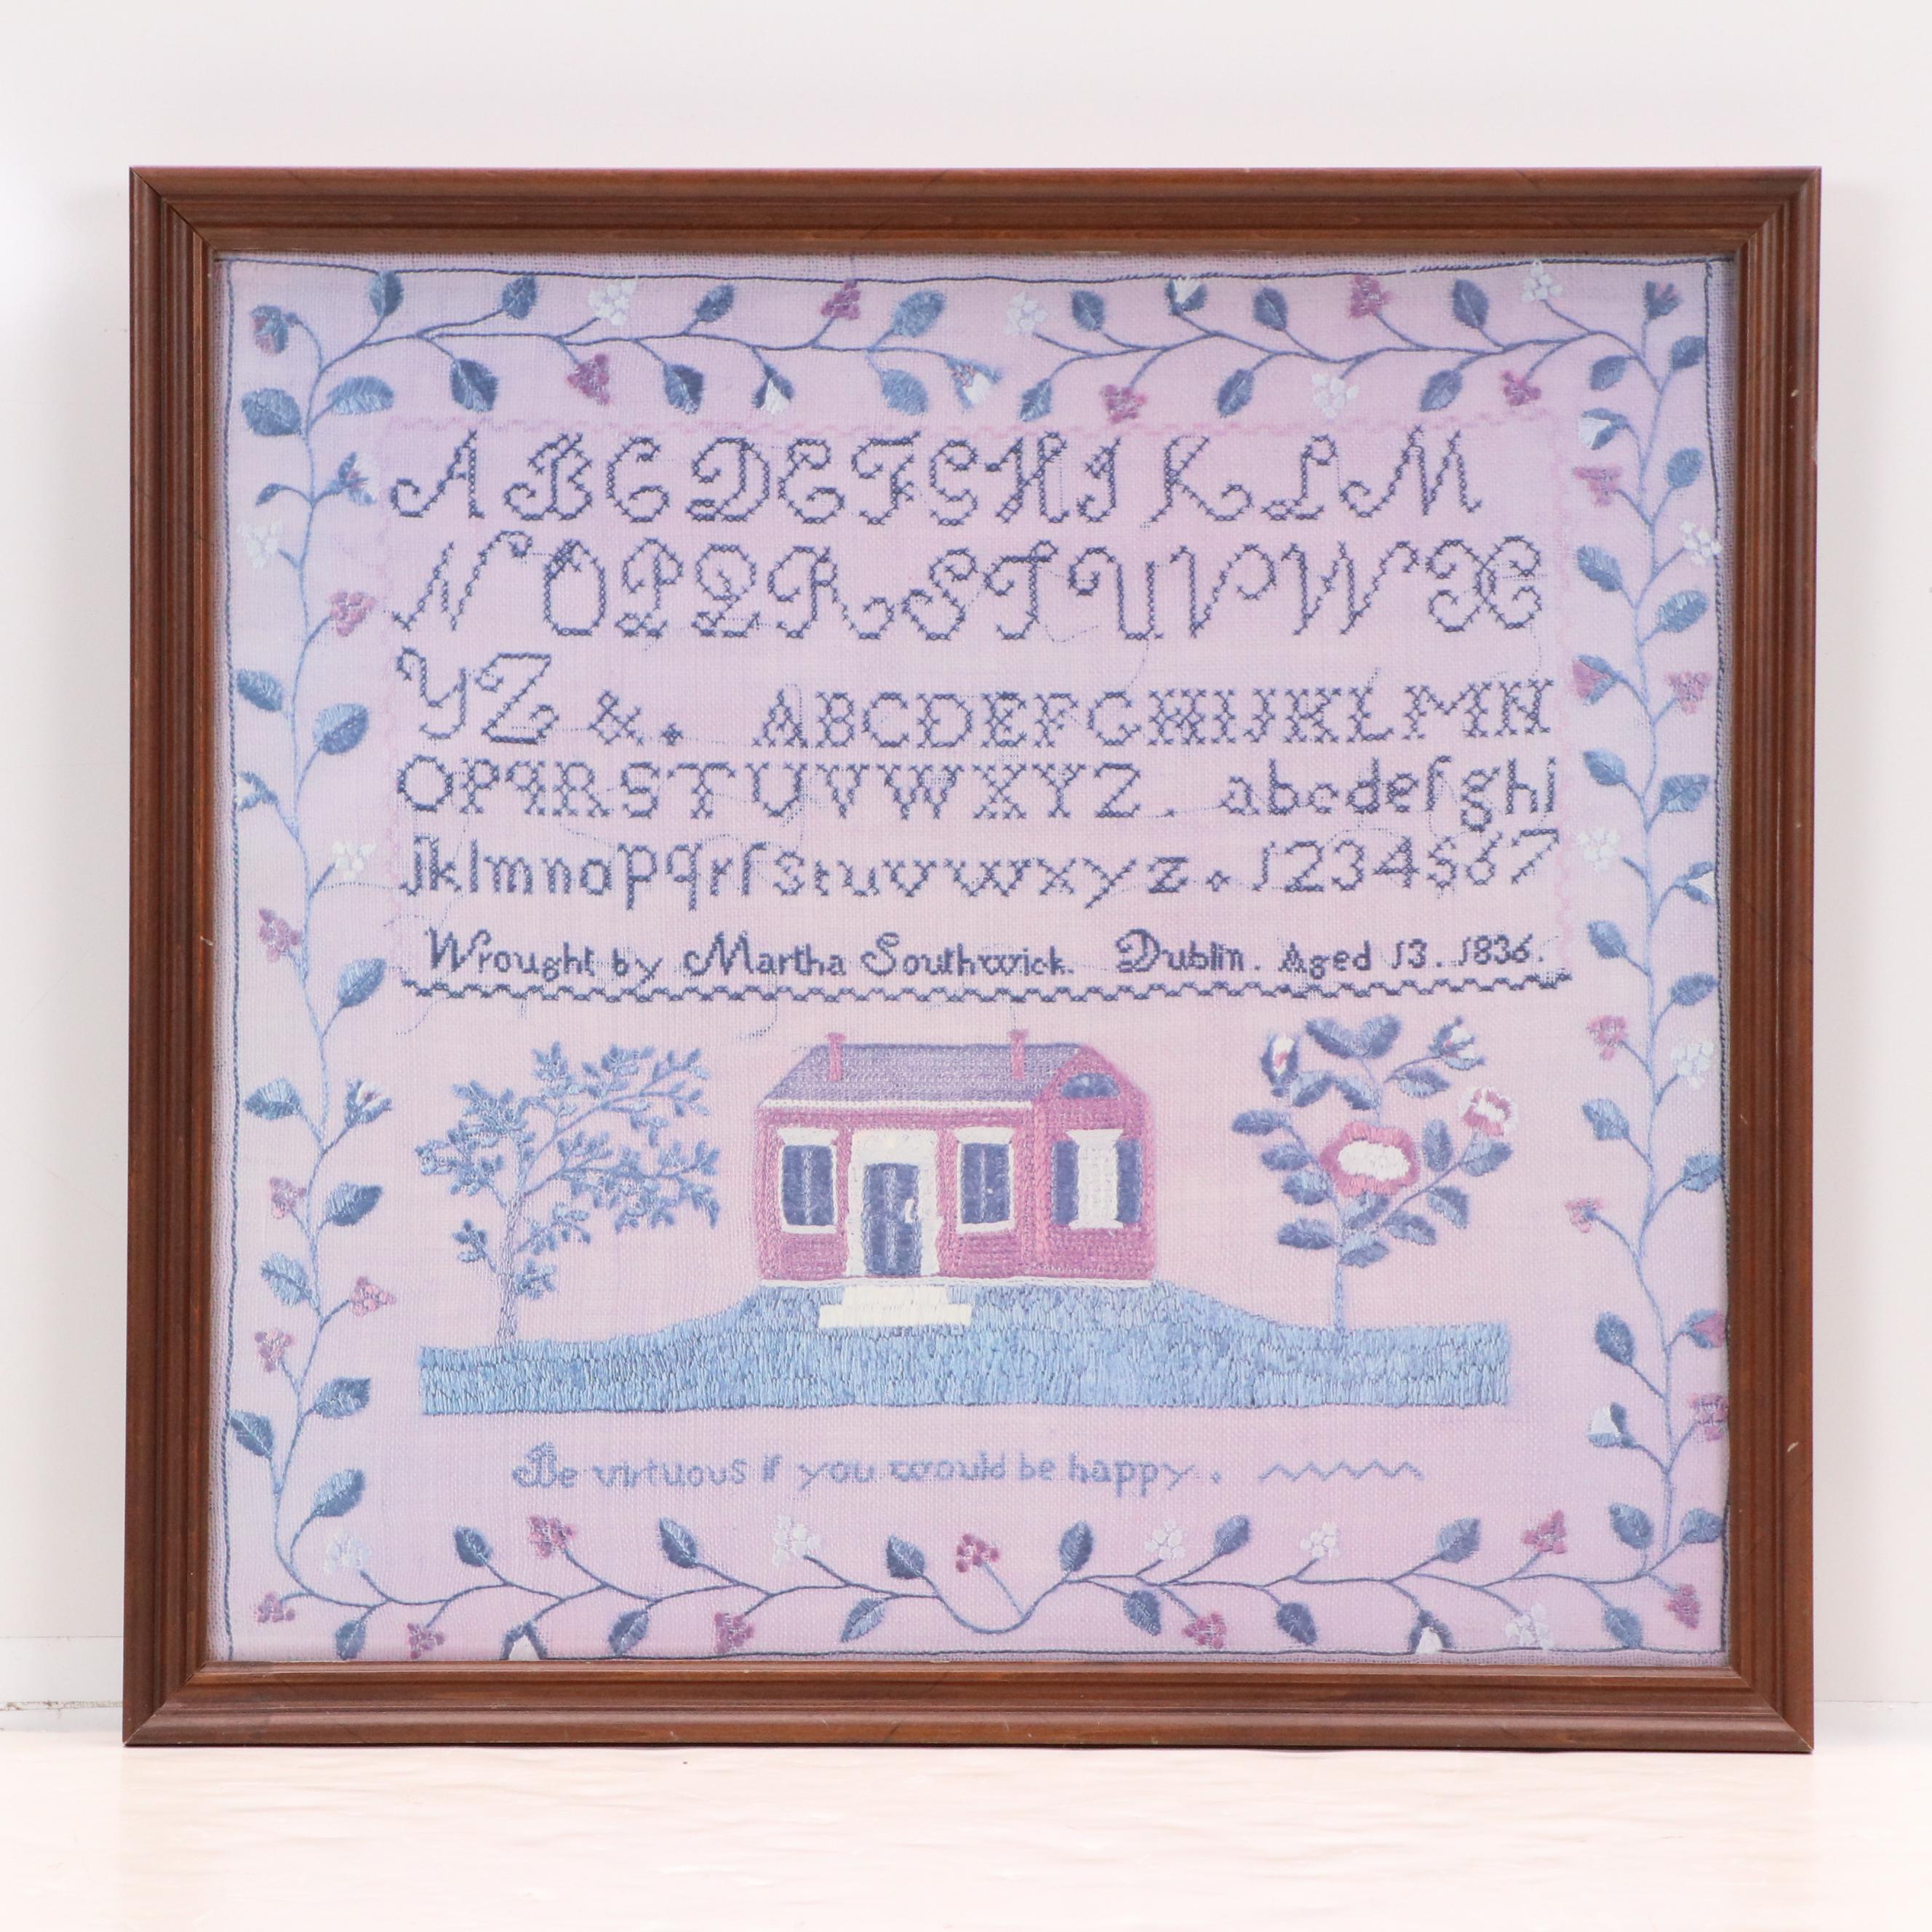 A B C D E F G H I K L M
N O P Q R S T U V W X
Y Z &. ABCDEFGHIJKLMN
OPqRSTUVWXYZ. abcdefghi
jklmnopqrſstuvwxyz. 1234567
Wrought by Martha Southwick. Dublin. Aged 13. 1836.
Be virtuous if you would be happy.